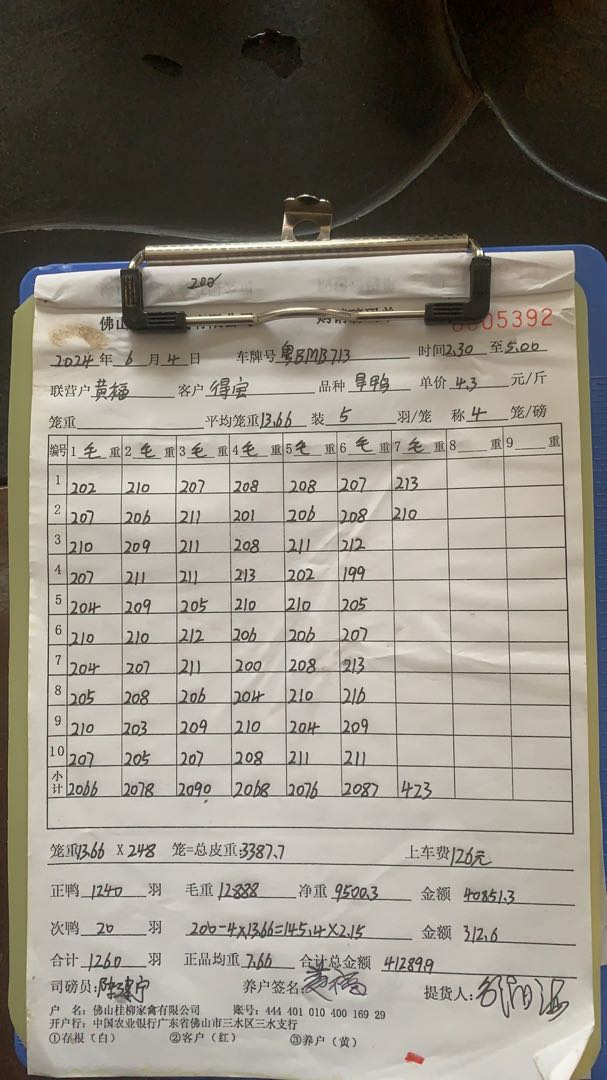 200
佛山
0005392
2024 年 6 月 4 日 车牌号 粤BMB713 时间 2.30 至 5.00
联营户 黄福 客户 得宝 品种 旱鸭 单价 4.3 元/斤
笼重 平均笼重 13.66 装 5 羽/笼 称 4 笼/磅
编号 1 毛 重 2 毛 重 3 毛 重 4 毛 重 5 毛 重 6 毛 重 7 毛 重 8 重 9 重
1 202 210 207 208 208 207 213
2 207 206 211 201 206 208 210
3 210 209 211 208 211 212
4 207 211 211 213 202 199
5 204 209 205 210 210 205
6 210 210 212 206 206 207
7 204 207 211 200 208 213
8 205 208 206 204 210 216
9 210 203 209 210 204 209
10 207 205 207 208 211 211
小计 2066 2078 2090 2068 2076 2087 423
笼重 13.66 X 248 笼=总皮重: 3387.7 上车费 126元
正鸭 1240 羽 毛重 12888 净重 9500.3 金额 40851.3
次鸭 20 羽 200-4×13.66=145.4×2.15 金额 312.6
合计 1260 羽 正品均重 7.66 合计总金额 41289.9
司磅员: 养户签名: 黄福 提货人:
户 名: 佛山桂柳家禽有限公司 账号: 444 401 010 400 169 29
开户行: 中国农业银行广东省佛山市三水区三水支行
①存根（白） ②客户（红） ③养户（黄）